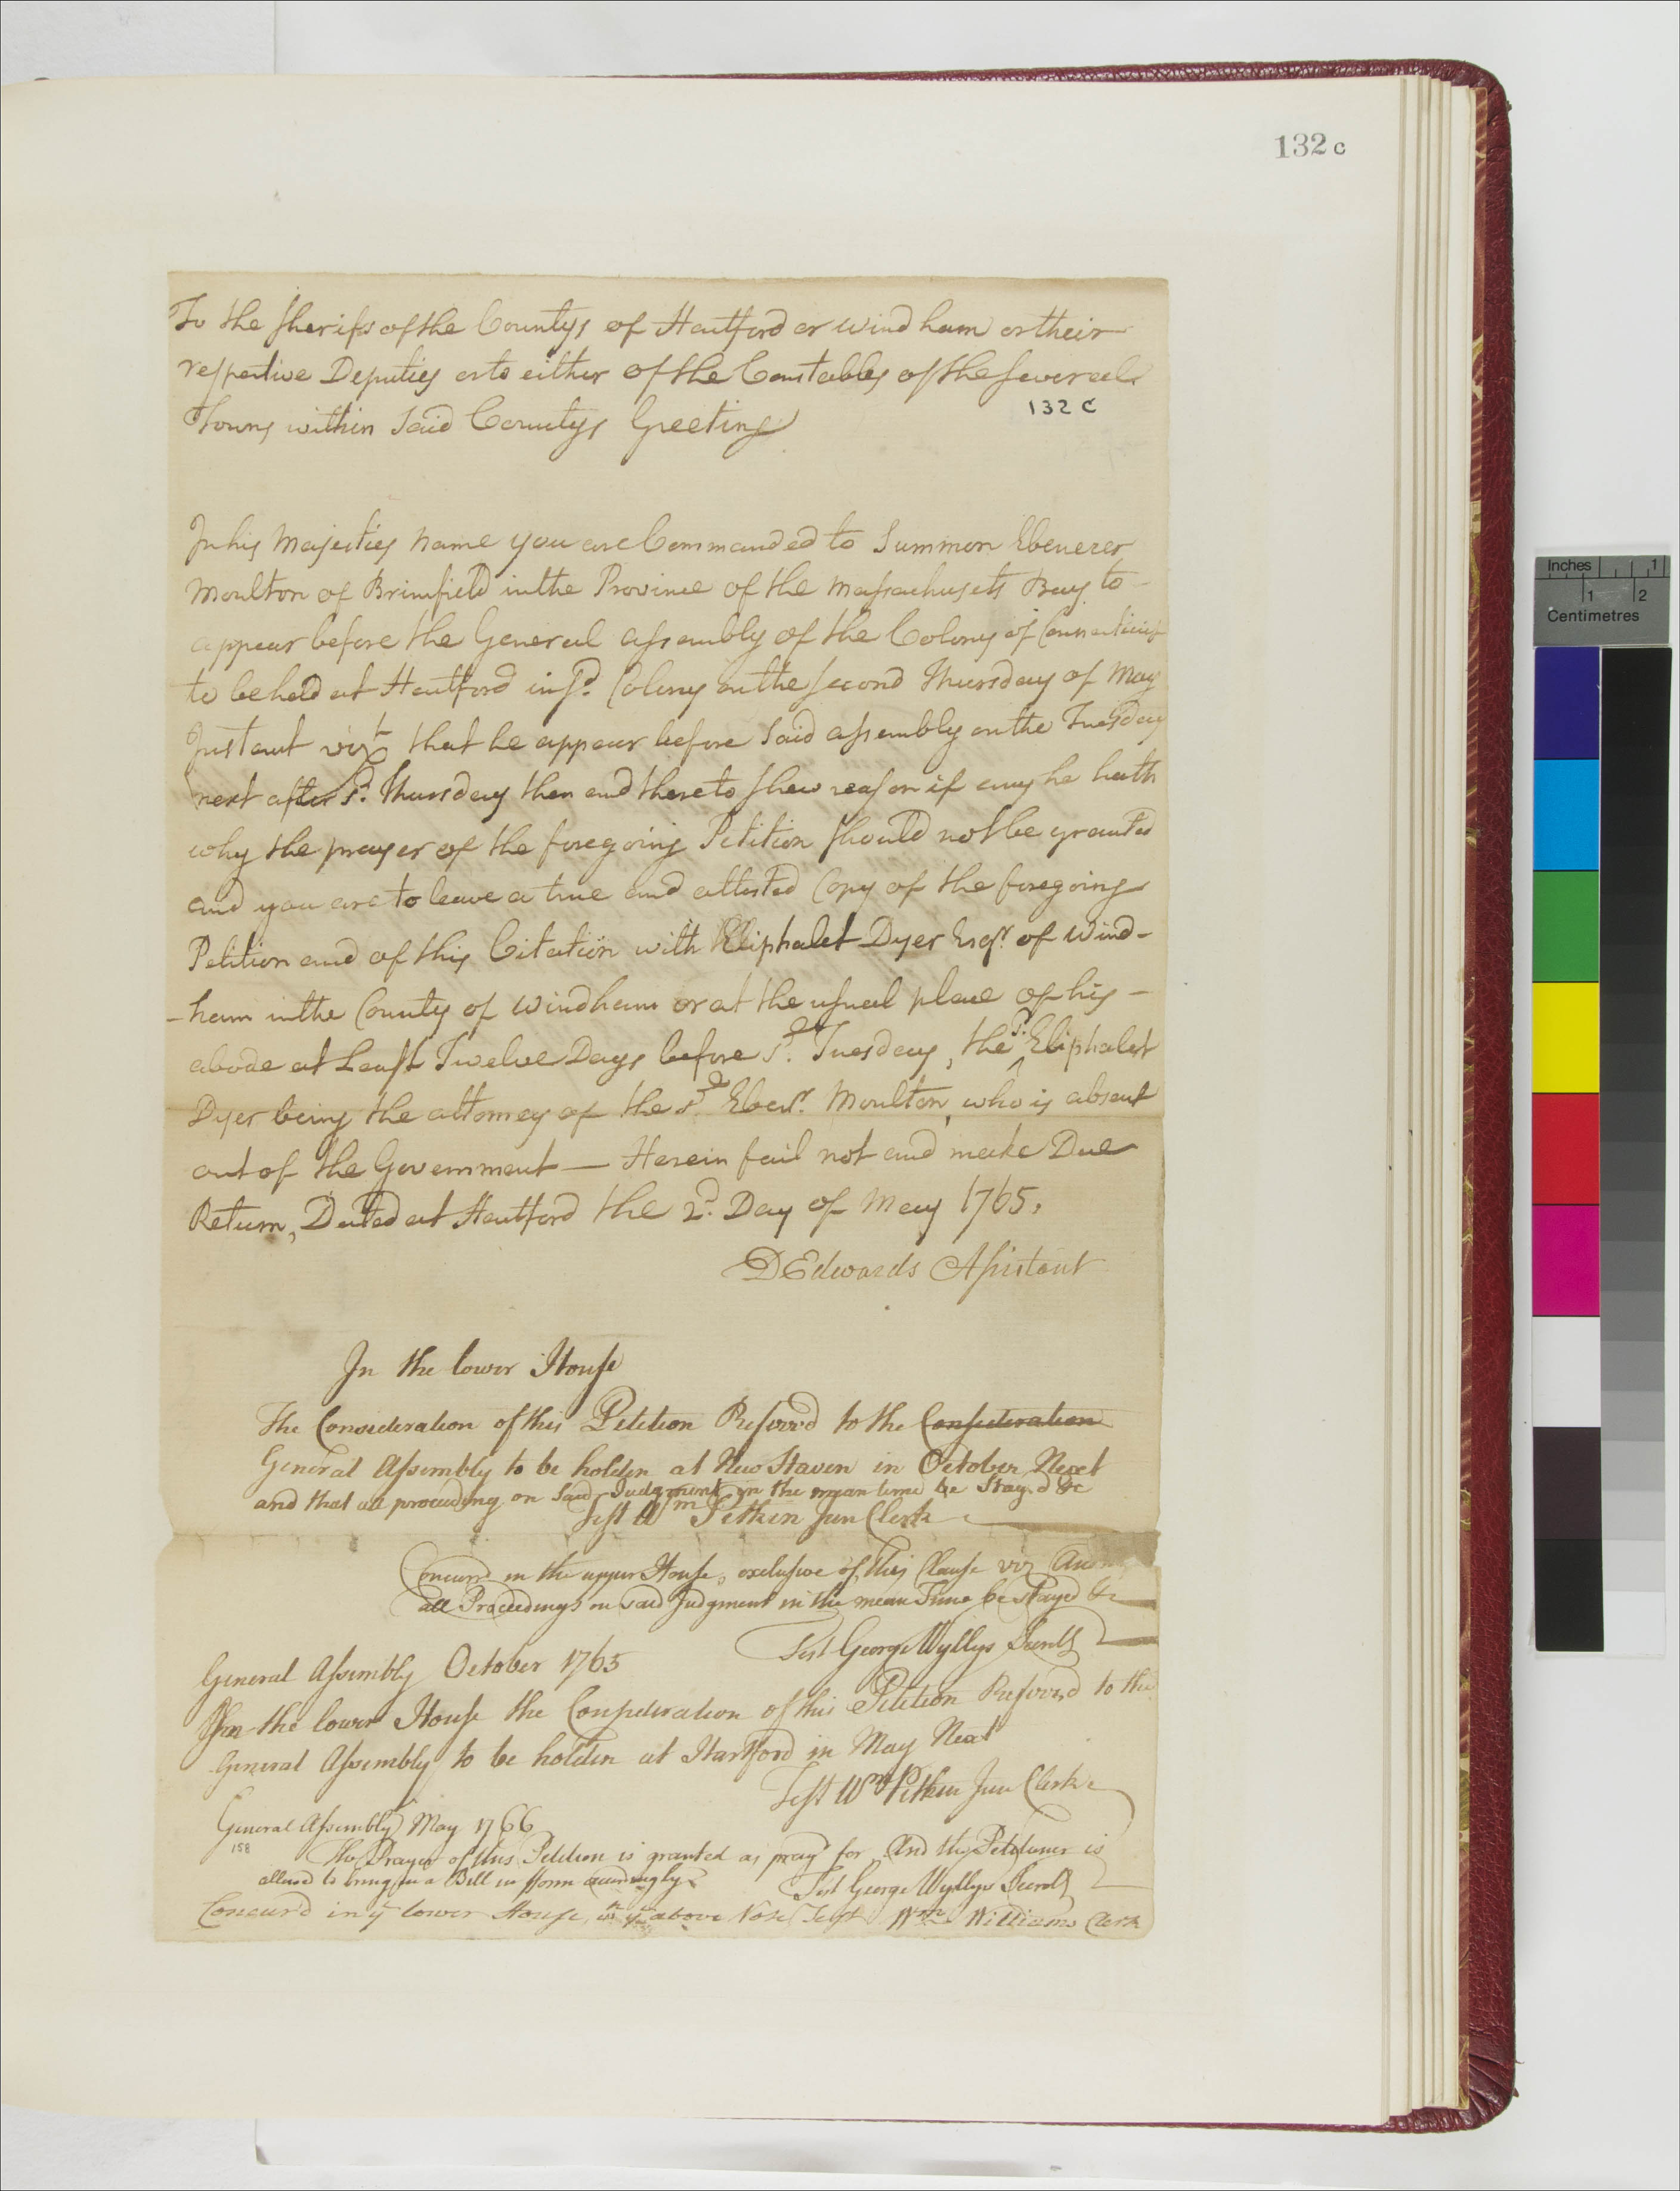 132 c
To the Sherifs of the Countys of Hartford or Windham or their
respective Deputies or to either of the Constables of the several
132 C
Towns within said Countys Greeting
In his Majesties name you are Commanded to Summon Ebenezer
Moulton of Brimfield in the Province of the Massachusets Bay to
appear before the General assembly of the Colony of Connecticut
to be held at Hartford in sd. Colony on the second Thursday of May
Instant vizt that he appear before said assembly on the Tuesday
next after sd. Thursday then and there to shew reason if any he hath
why the prayer of the foregoing Petition should not be granted
and you are to leave a true and attested Copy of the foregoing
Petition and of this Citation with Eliphalet Dyer Esqr. of Wind-
-ham in the County of Windham or at the usual place of his -
abode at Least Twelve Days before sd. Tuesday, the sd. Eliphalet
Dyer being the attorney of the sd. Ebenr. Moulton, who is absent
out of the Government — Herein fail not and make Due
Return, Dated at Hartford the 2d. Day of May 1765.
D Edwards Assistant
In the lower House
The Consideration of this Petition Referrd to the Consideration
General Assembly to be holden at New Haven in October Next
and that all proceeding on said Judgment in the mean time be Stayd &c
Test Wm Pitkin Jun Clerk
Concurrd in the upper House, exclusive of this Clause viz And
all Proceedings on said Judgment in the mean Time be stayed &c
Test George Wyllys Secrety
General Assembly October 1765
In the lower House the Consideration of this Petition Referred to the
General Assembly to be holden at Hartford in May Next
Test Wm Pitkin Jun Clerk
General Assembly May 1766
158
The Prayer of this Petition is granted as pray'd for And the Petitioner is
allowd to bring in a Bill in fform accordingly
Test George Wyllys Secrety
Concur'd in ye lower House, in ye above Vote Test Wm Williams Clerk
Inches 1
1 2
Centimetres